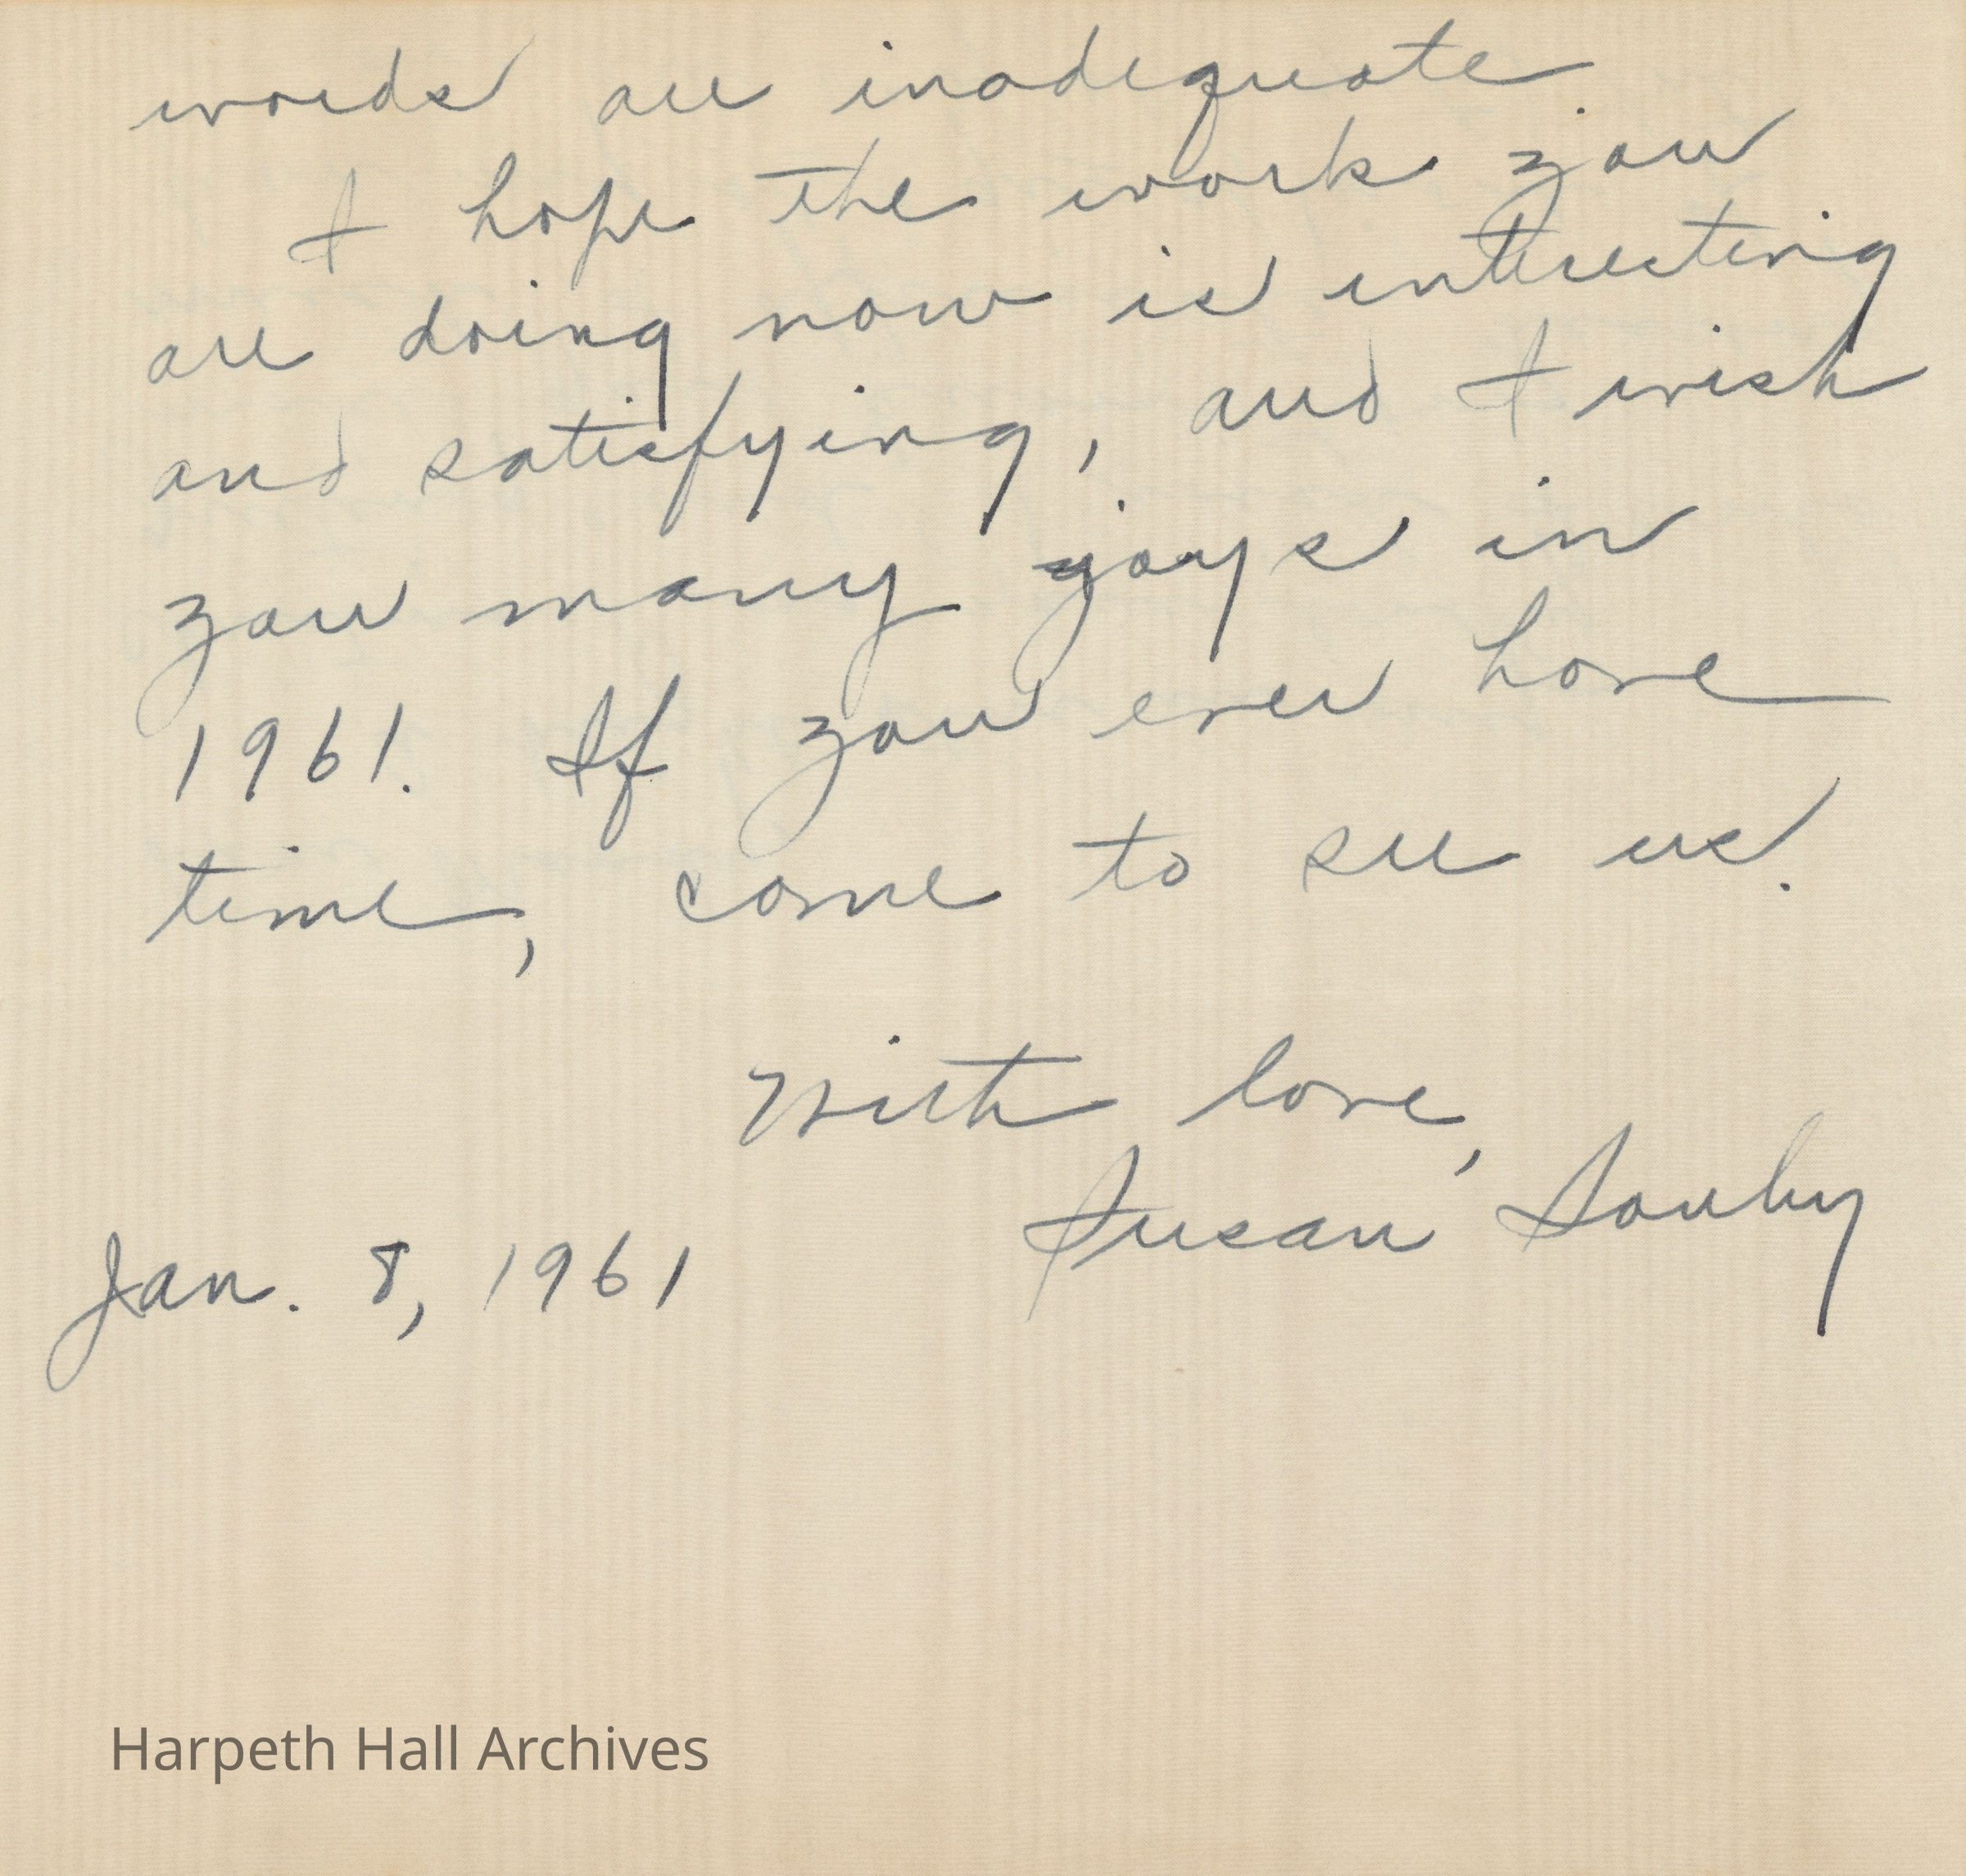 words are inadequate.
I hope the work you
are doing now is interesting
and satisfying, and I wish
you many joys in
1961. If you ever have
time, come to see us.
With love,
Susan Souby
Jan. 8, 1961
Harpeth Hall Archives